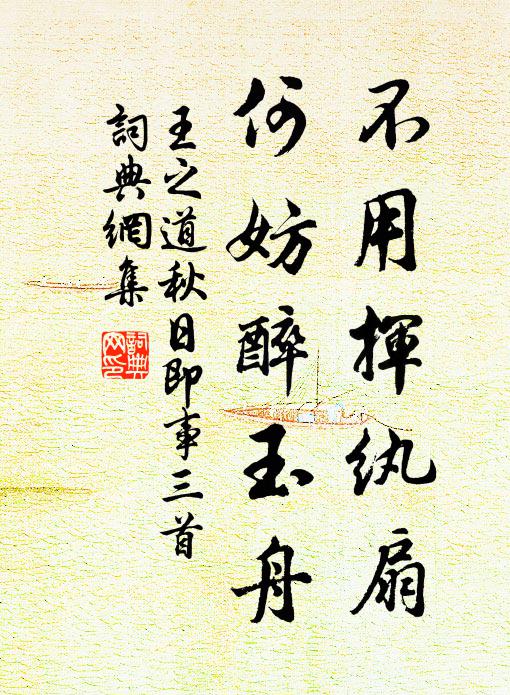 不用揮紈扇
何妨醉玉舟
王之道秋日即事三首
詞典網集
詞典
网印